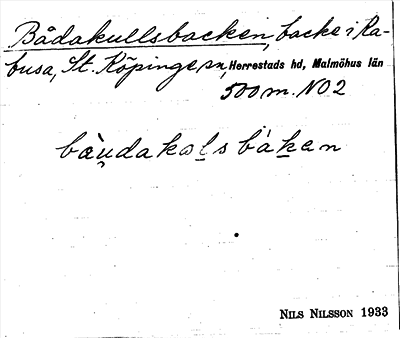 Bådakullsbacken, backe i Ra-
busa, St. Köpinge sn, Herrestads hd, Malmöhus län
500 m. NO 2
bæ̀u̯dakol̲s bák̲an
NILS NILSSON 1933